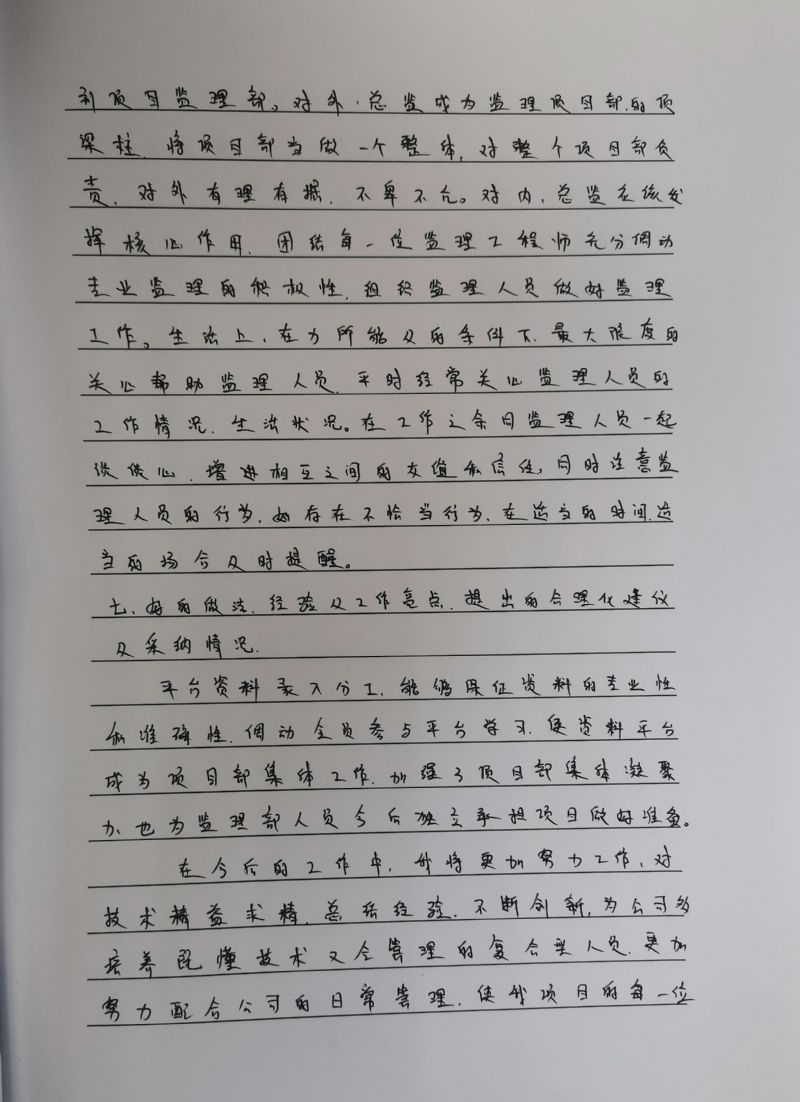 到项目监理部。对外,总监成为监理项目部的顶
梁柱,将项目部当做一个整体,对整个项目部负
责,对外有理有据,不卑不亢。对内,总监应该发
挥核心作用,团结每一位监理工程师充分调动
专业监理的积极性,组织监理人员做好监理
工作。生活上,在力所能及的条件下,最大限度的
关心帮助监理人员,平时经常关心监理人员的
工作情况,生活状况。在工作之余同监理人员一起
谈谈心,增进相互之间的友谊和信任,同时注意监
理人员的行为,如存在不恰当行为,在适当的时间,适
当的场合及时提醒。
七、好的做法、经验及工作亮点,提出的合理化建议
及采纳情况.
平台资料录入分工,能够保证资料的专业性
和准确性,调动全员参与平台学习,使资料平台
成为项目部集体工作,加强了项目部集体凝聚
力,也为监理部人员今后独立承担项目做好准备。
在今后的工作中,我将更加努力工作,对
技术精益求精,总结经验,不断创新,为公司多
培养既懂技术又会管理的复合型人员,更加
努力配合公司的日常管理,使我项目的每一位